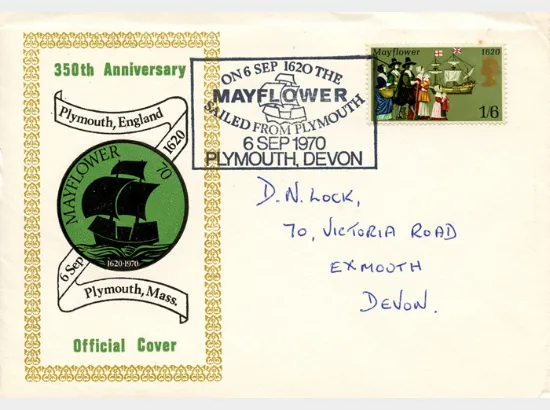 350th Anniversary
Plymouth, England
1620
MAYFLOWER 70
1620-1970
6 Sep
Plymouth, Mass.
Official Cover
ON 6 SEP 1620 THE
MAYFLOWER
SAILED FROM PLYMOUTH
6 SEP 1970
PLYMOUTH, DEVON
Mayflower 1620
1/6
D.N. LOCK,
70, VICTORIA ROAD
EXMOUTH
DEVON.